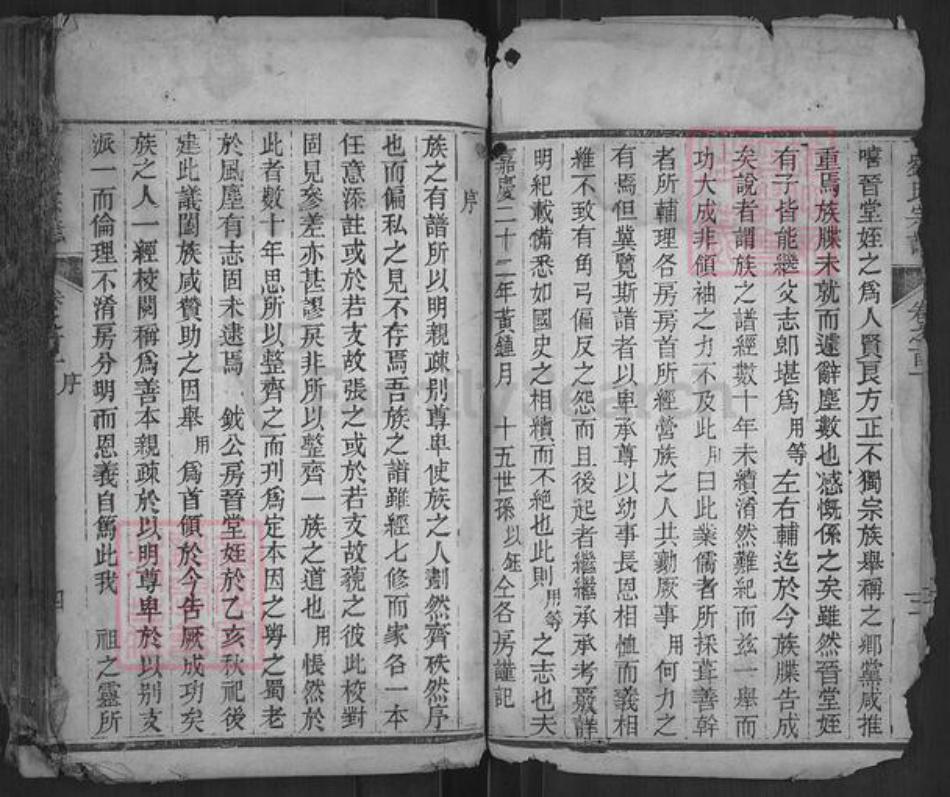 嘻晉堂姪之爲人賢良方正不獨宗族舉稱之鄉黨咸推
重焉族牒未就而遽辭塵數也感慨係之矣雖然晉堂姪
有子皆能繼父志卽堪爲用等左右輔迄於今族牒告成
矣說者謂族之譜經數十年未續渻然難紀而兹一舉而
功大成非領袖之力不及此用曰此業儒者所採葺善幹
者所輔理各房房首所經營族之人共勷厥事用何力之
有焉但冀覽斯譜者以卑承尊以幼事長恩相恤而義相
維不致有角弓偏反之怨而且後起者繼繼承承考覈詳
明紀載備悉如國史之相續而不絶也此則用等之志也夫
嘉慶二十二年黃鍾月 十五世孫以鈺仝各房謹記
序
族之有譜所以明親疎别尊卑使族之人劃然齊秩然序
也而偏私之見不存焉吾族之譜雖經七修而家各一本
任意添註或於若支故張之或於若支故藐之彼此校對
固見參差亦甚謬戾非所以整齊一族之道也用悵然於
此者數十年思所以整齊之而刋爲定本因之勞之蜀老
於風塵有志固未逮焉 鉞公房晉堂姪於乙亥秋祀後
建此議闔族咸贊助之因舉用爲首領於今告厥成功矣
族之人一經校閱稱爲善本親疎於以明尊卑於以别支
派一而倫理不淆房分明而恩義自篤此我 祖之靈所
序